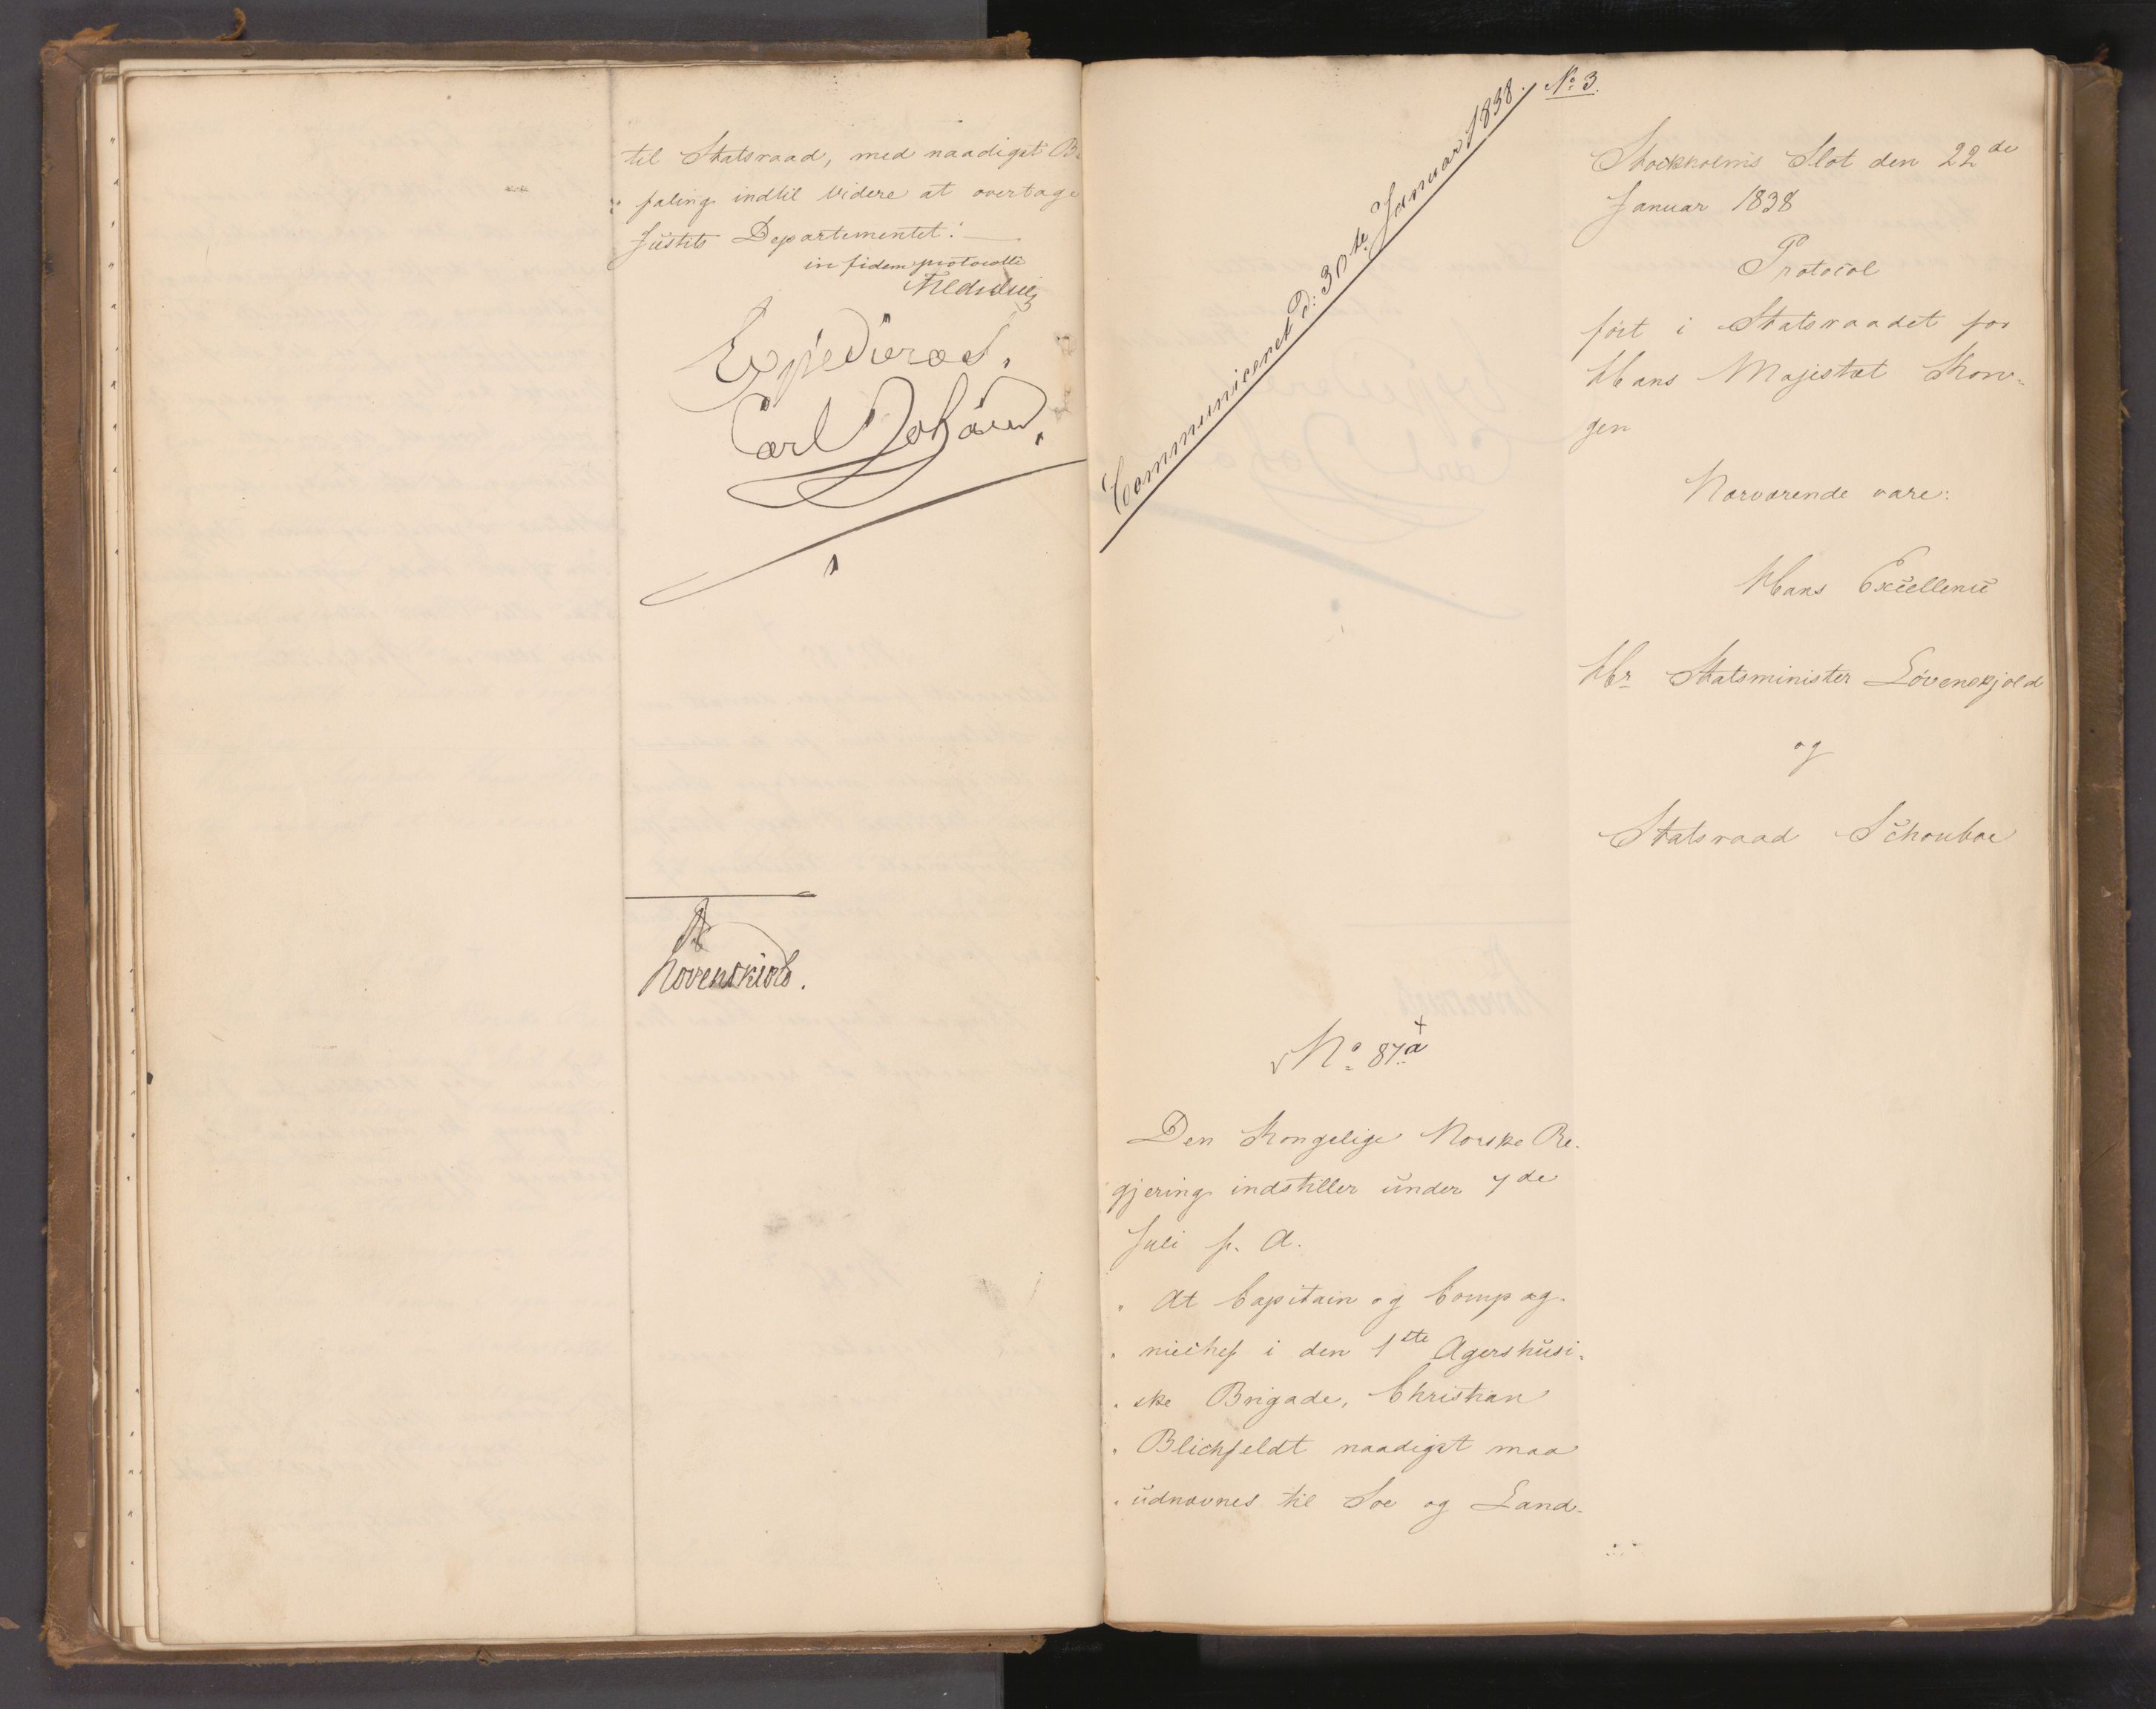 til Statsraad, med naadigst Be
faling indtil Videre at overtage
Justits Departementet."
in fidem protocolli
Expederes.
Carl Johan.
Løvenskiold.
Communiceret d: 30te Januar 1838.
No 3.
Stockholms Slot den 22de
Januar 1838
Protocol
ført i Statsraadet for
Hans Majestæt Kon-
gen
Nærværende vare:
Hans Excellence
Hr Statsminister Løvenskjold
og
Statsraad Schouboe
No 87a
Den Kongelige Norske Re-
gjering indstiller under 7de
Juli f. A.
" At Capitain og Compag-
" niechef i den 1ste Agershusi-
" ske Brigade, Christian
" Blichfeldt naadigst maa
" udnævnes til Søe og Land-